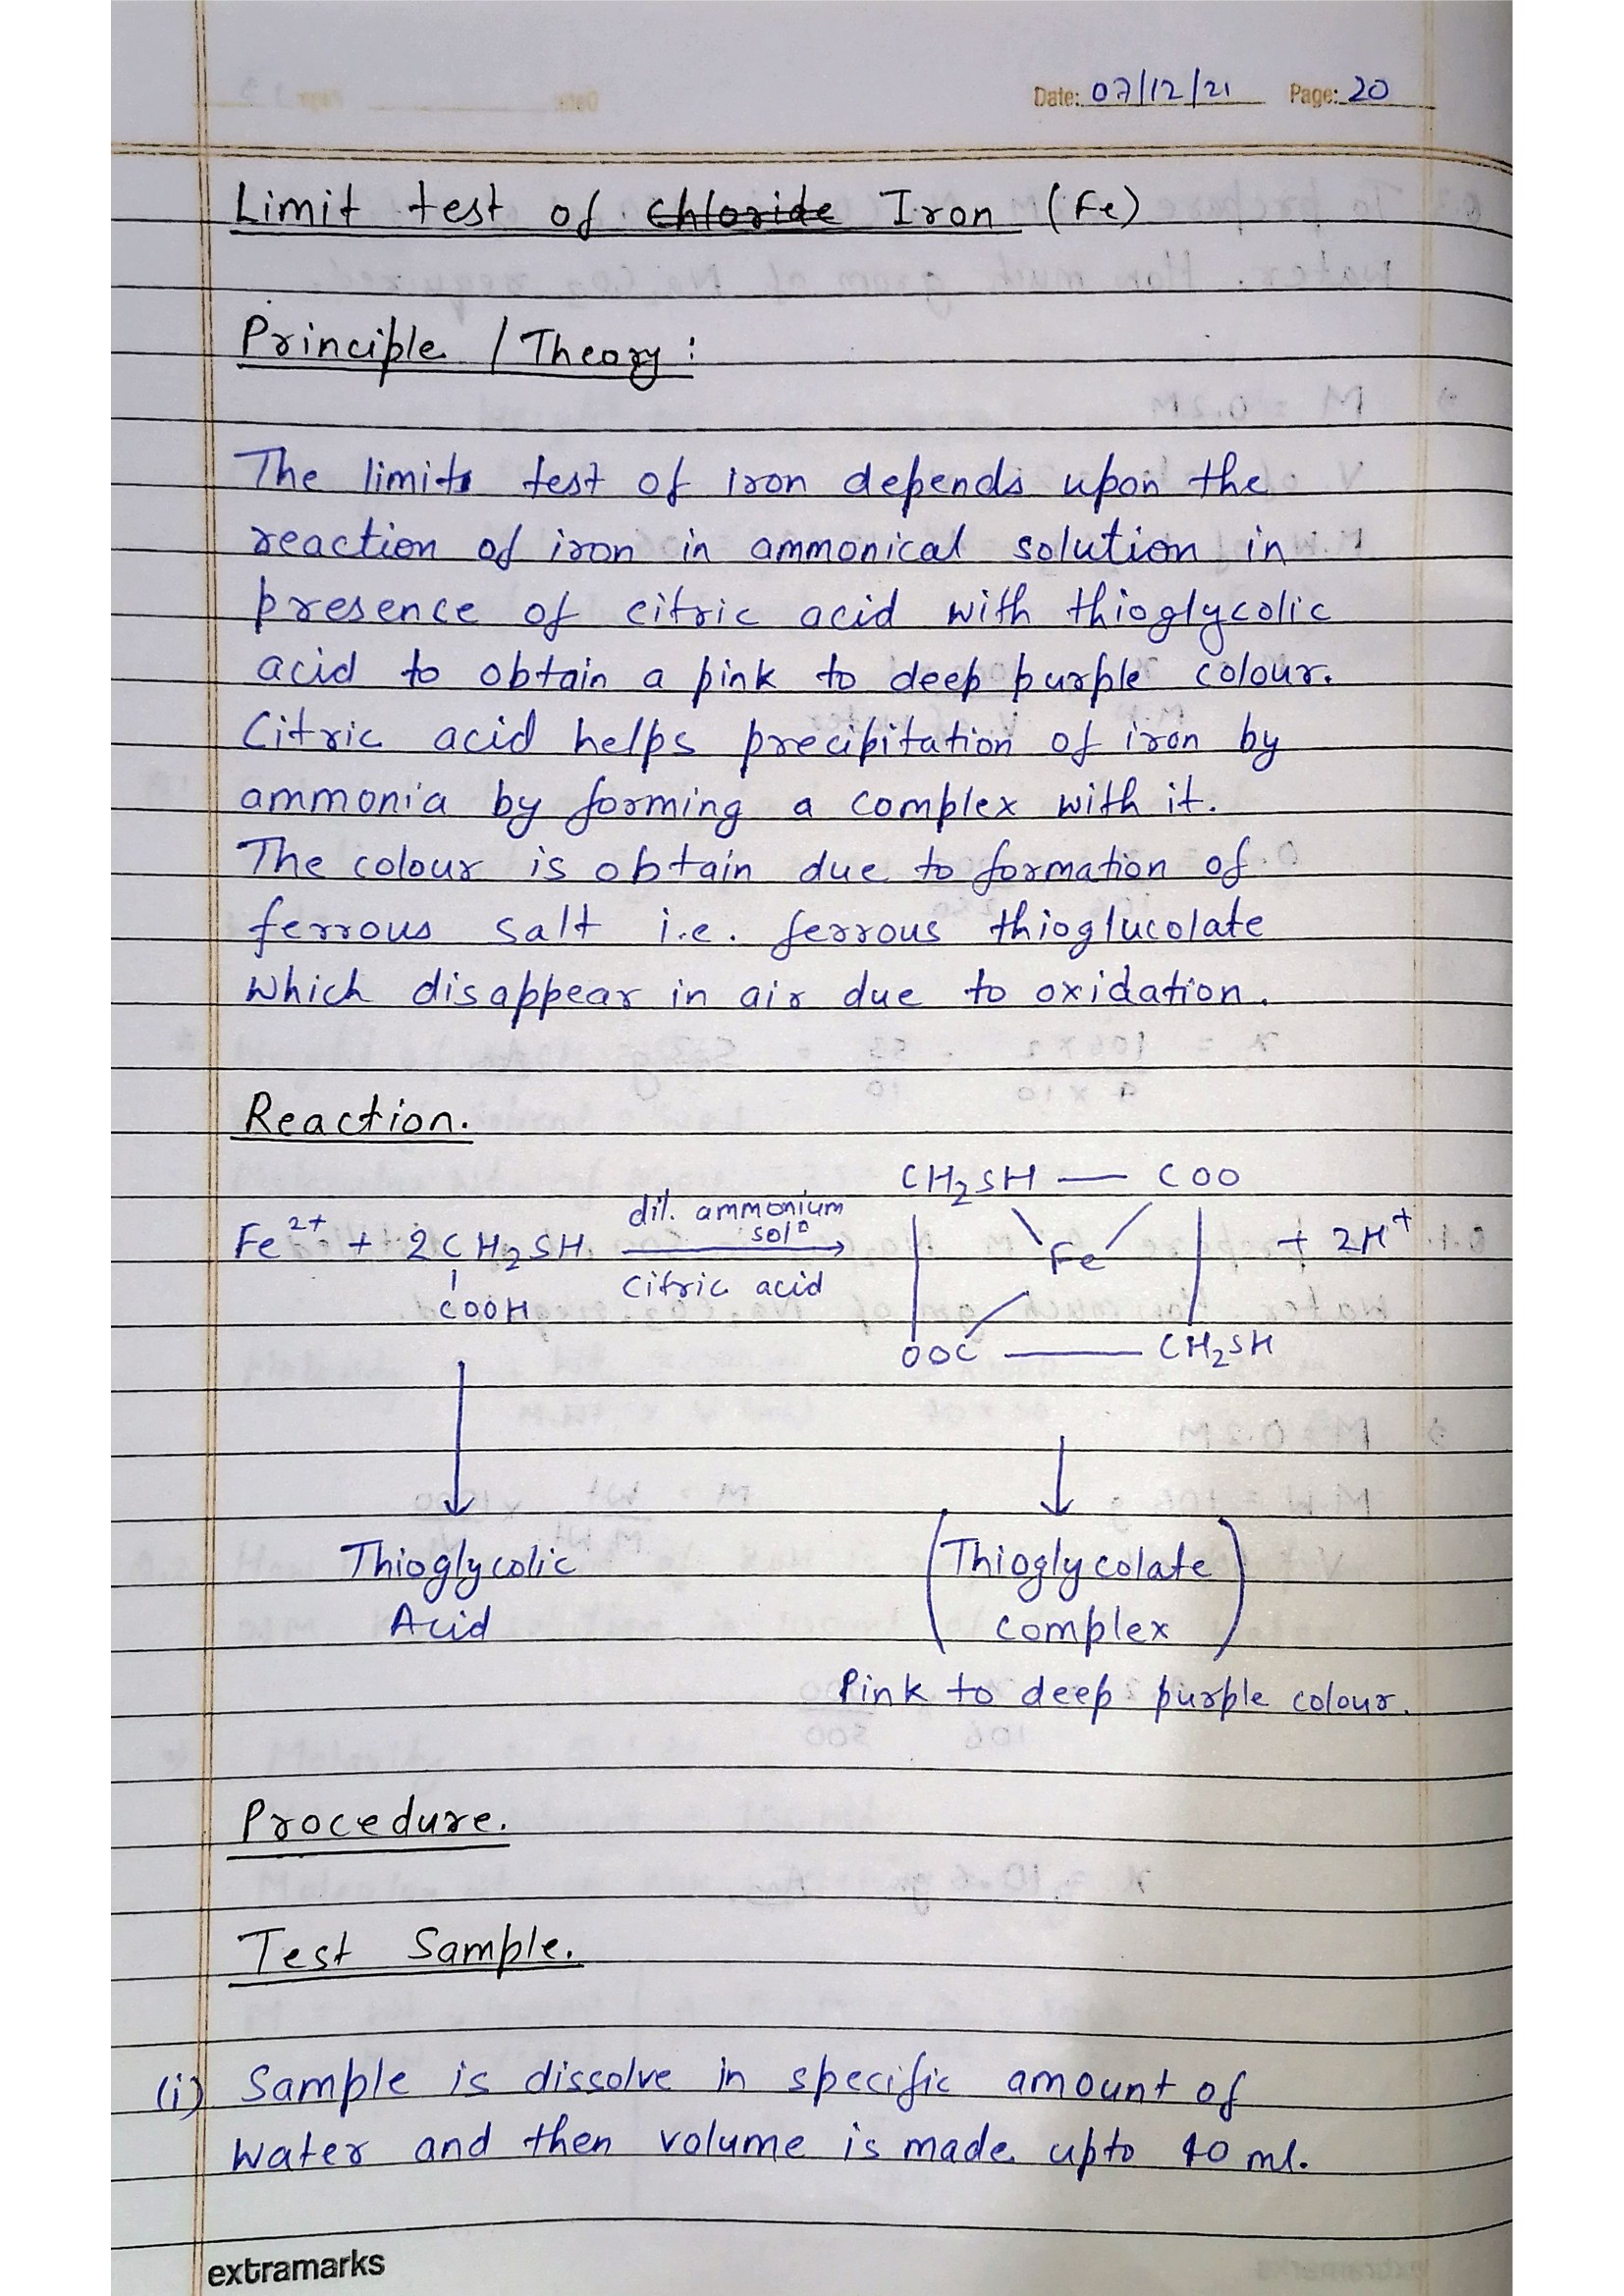 Date: 07/12/21 Page: 20
Limit test of chloride Iron (Fe)
Principle / Theory:
The limits test of iron depends upon the
reaction of iron in ammonical solution in
presence of citric acid with thioglycolic
acid to obtain a pink to deep purple colour.
Citric acid helps precipitation of iron by
ammonia by forming a complex with it.
The colour is obtain due to formation of
ferrous salt i.e. ferrous thioglucolate
which disappear in air due to oxidation.
Reaction.
CH₂SH — COO
Fe²⁺ + 2CH₂SH dil. ammonium solⁿ → Fe + 2H⁺
Citric acid
COOH
OOC — CH₂SH
Thioglycolic (Thioglycolate
Acid complex)
Pink to deep purple colour.
Procedure.
Test Sample.
(i) Sample is dissolve in specific amount of
water and then volume is made upto 40 ml.
extramarks